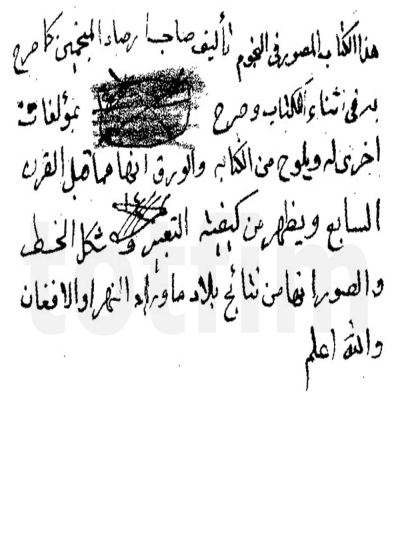 هذا الكتاب المصور في النجوم تأليف صاحب ارصاد المنجمين كما صرح
به في اثناء الكتاب وصرح بمؤلفات
اخرى له ويلوح من الكتابه والورق انها مما قبل القرن
السابع ويظهر من كيفيته التعبير و شكل الخط
والصور انها من نتائج بلاد ماوراء النهر او الافغان
والله اعلم